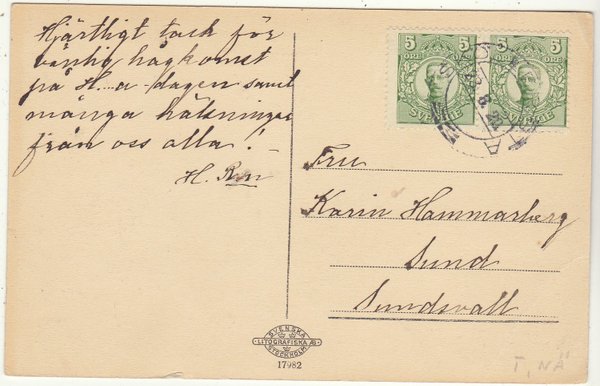 Hjärtligt tack för
vänlig hågkomst
på H...a dagen samt
många hälsningar
från oss alla!
H. Rn
5 5
ÖRE ÖRE
SVERIGE SVERIGE
Fru
Karin Hammarberg
Sund
Sundsvall
SVENSKA
LITOGRAFISKA AB
STOCKHOLM
17982
T, NÄ